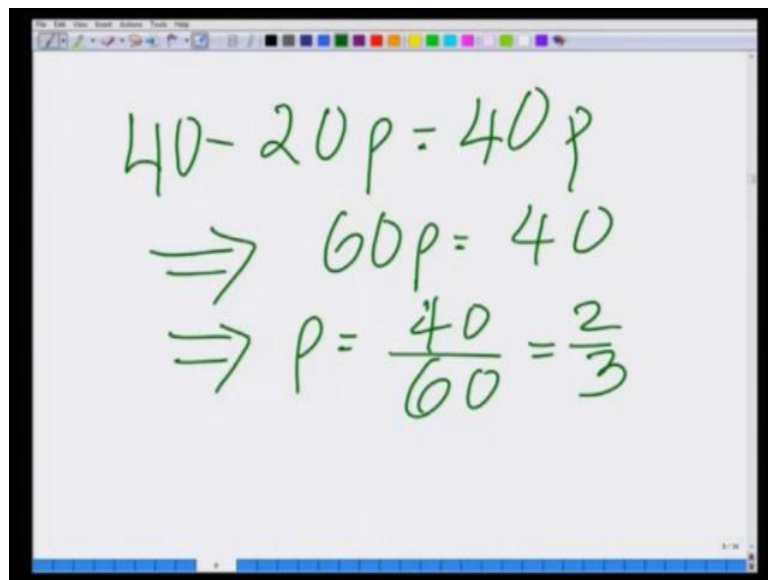 File Edit View Insert Actions Tools Help
40 - 20p = 40p
⇒ 60p = 40
⇒ p = 40/60 = 2/3